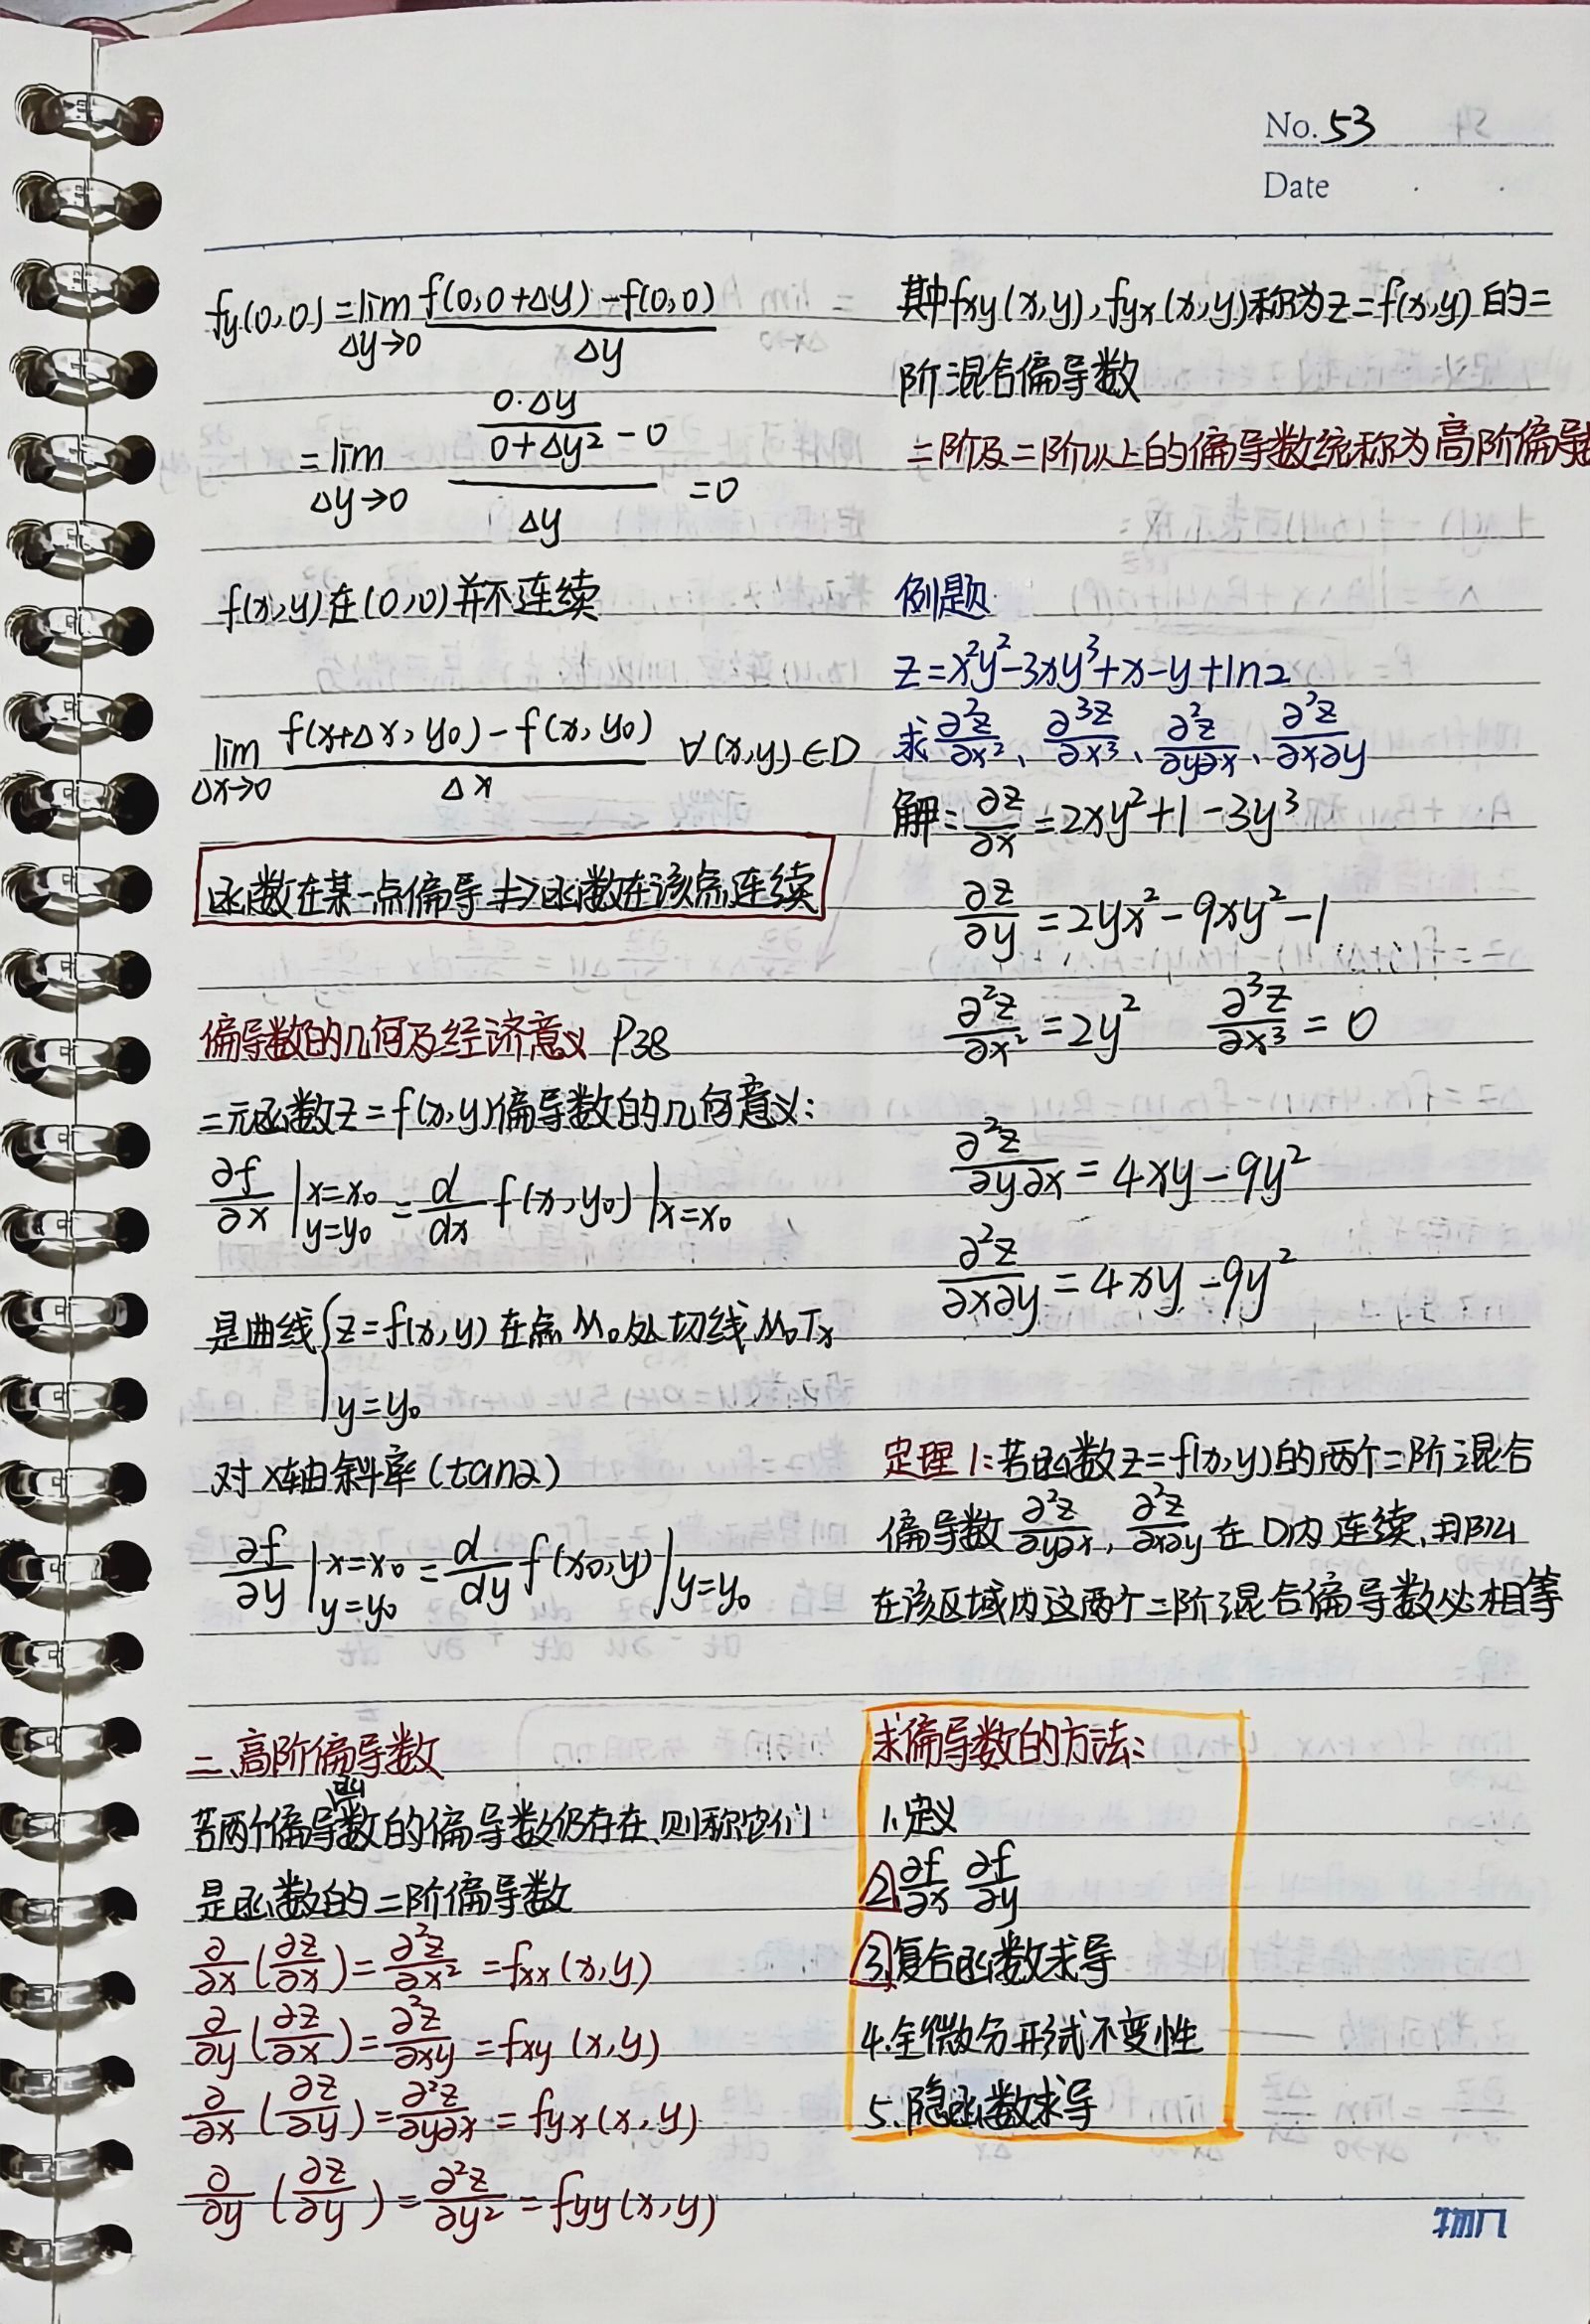 No. 53
Date
fy(0,0) = lim Δy→0 (f(0,0+Δy) - f(0,0)) / Δy
= lim Δy→0 ((0·Δy)/(0+Δy²) - 0) / Δy = 0
f(x,y)在(0,0)并不连续
lim Δx→0 (f(x+Δx, y₀) - f(x, y₀)) / Δx ∀(x,y)∈D
函数在某一点偏导 ≠> 函数在该点连续
偏导数的几何及经济意义 P38
二元函数z=f(x,y)偏导数的几何意义:
∂f/∂x |x=x₀ y=y₀ = d/dx f(x,y₀) |x=x₀
是曲线{z=f(x,y) 在点M₀处切线M₀Tx
y=y₀
对x轴斜率(tanα)
∂f/∂y |x=x₀ y=y₀ = d/dy f(x₀,y) |y=y₀
二、高阶偏导数
若两个偏导函数的偏导数仍存在,则称它们
是函数的二阶偏导数
∂/∂x (∂z/∂x) = ∂²z/∂x² = fxx(x,y)
∂/∂y (∂z/∂x) = ∂²z/∂xy = fxy(x,y)
∂/∂x (∂z/∂y) = ∂²z/∂y∂x = fyx(x,y)
∂/∂y (∂z/∂y) = ∂²z/∂y² = fyy(x,y)
其中fxy(x,y),fyx(x,y)称为z=f(x,y)的二
阶混合偏导数
二阶及二阶以上的偏导数统称为高阶偏导数
例题
z=x²y²-3xy³+x-y+ln2
求∂²z/∂x²、∂³z/∂x³、∂²z/∂y∂x、∂²z/∂x∂y
解:∂z/∂x = 2xy²+1-3y³
∂z/∂y = 2yx²-9xy²-1
∂²z/∂x² = 2y² ∂³z/∂x³ = 0
∂²z/∂y∂x = 4xy-9y²
∂²z/∂x∂y = 4xy-9y²
定理1:若函数z=f(x,y)的两个二阶混合
偏导数∂²z/∂y∂x, ∂²z/∂x∂y在D内连续,那么
在该区域内这两个二阶混合偏导数必相等
求偏导数的方法:
1.定义
2.∂f/∂x ∂f/∂y
3.复合函数求导
4.全微分形式不变性
5.隐函数求导